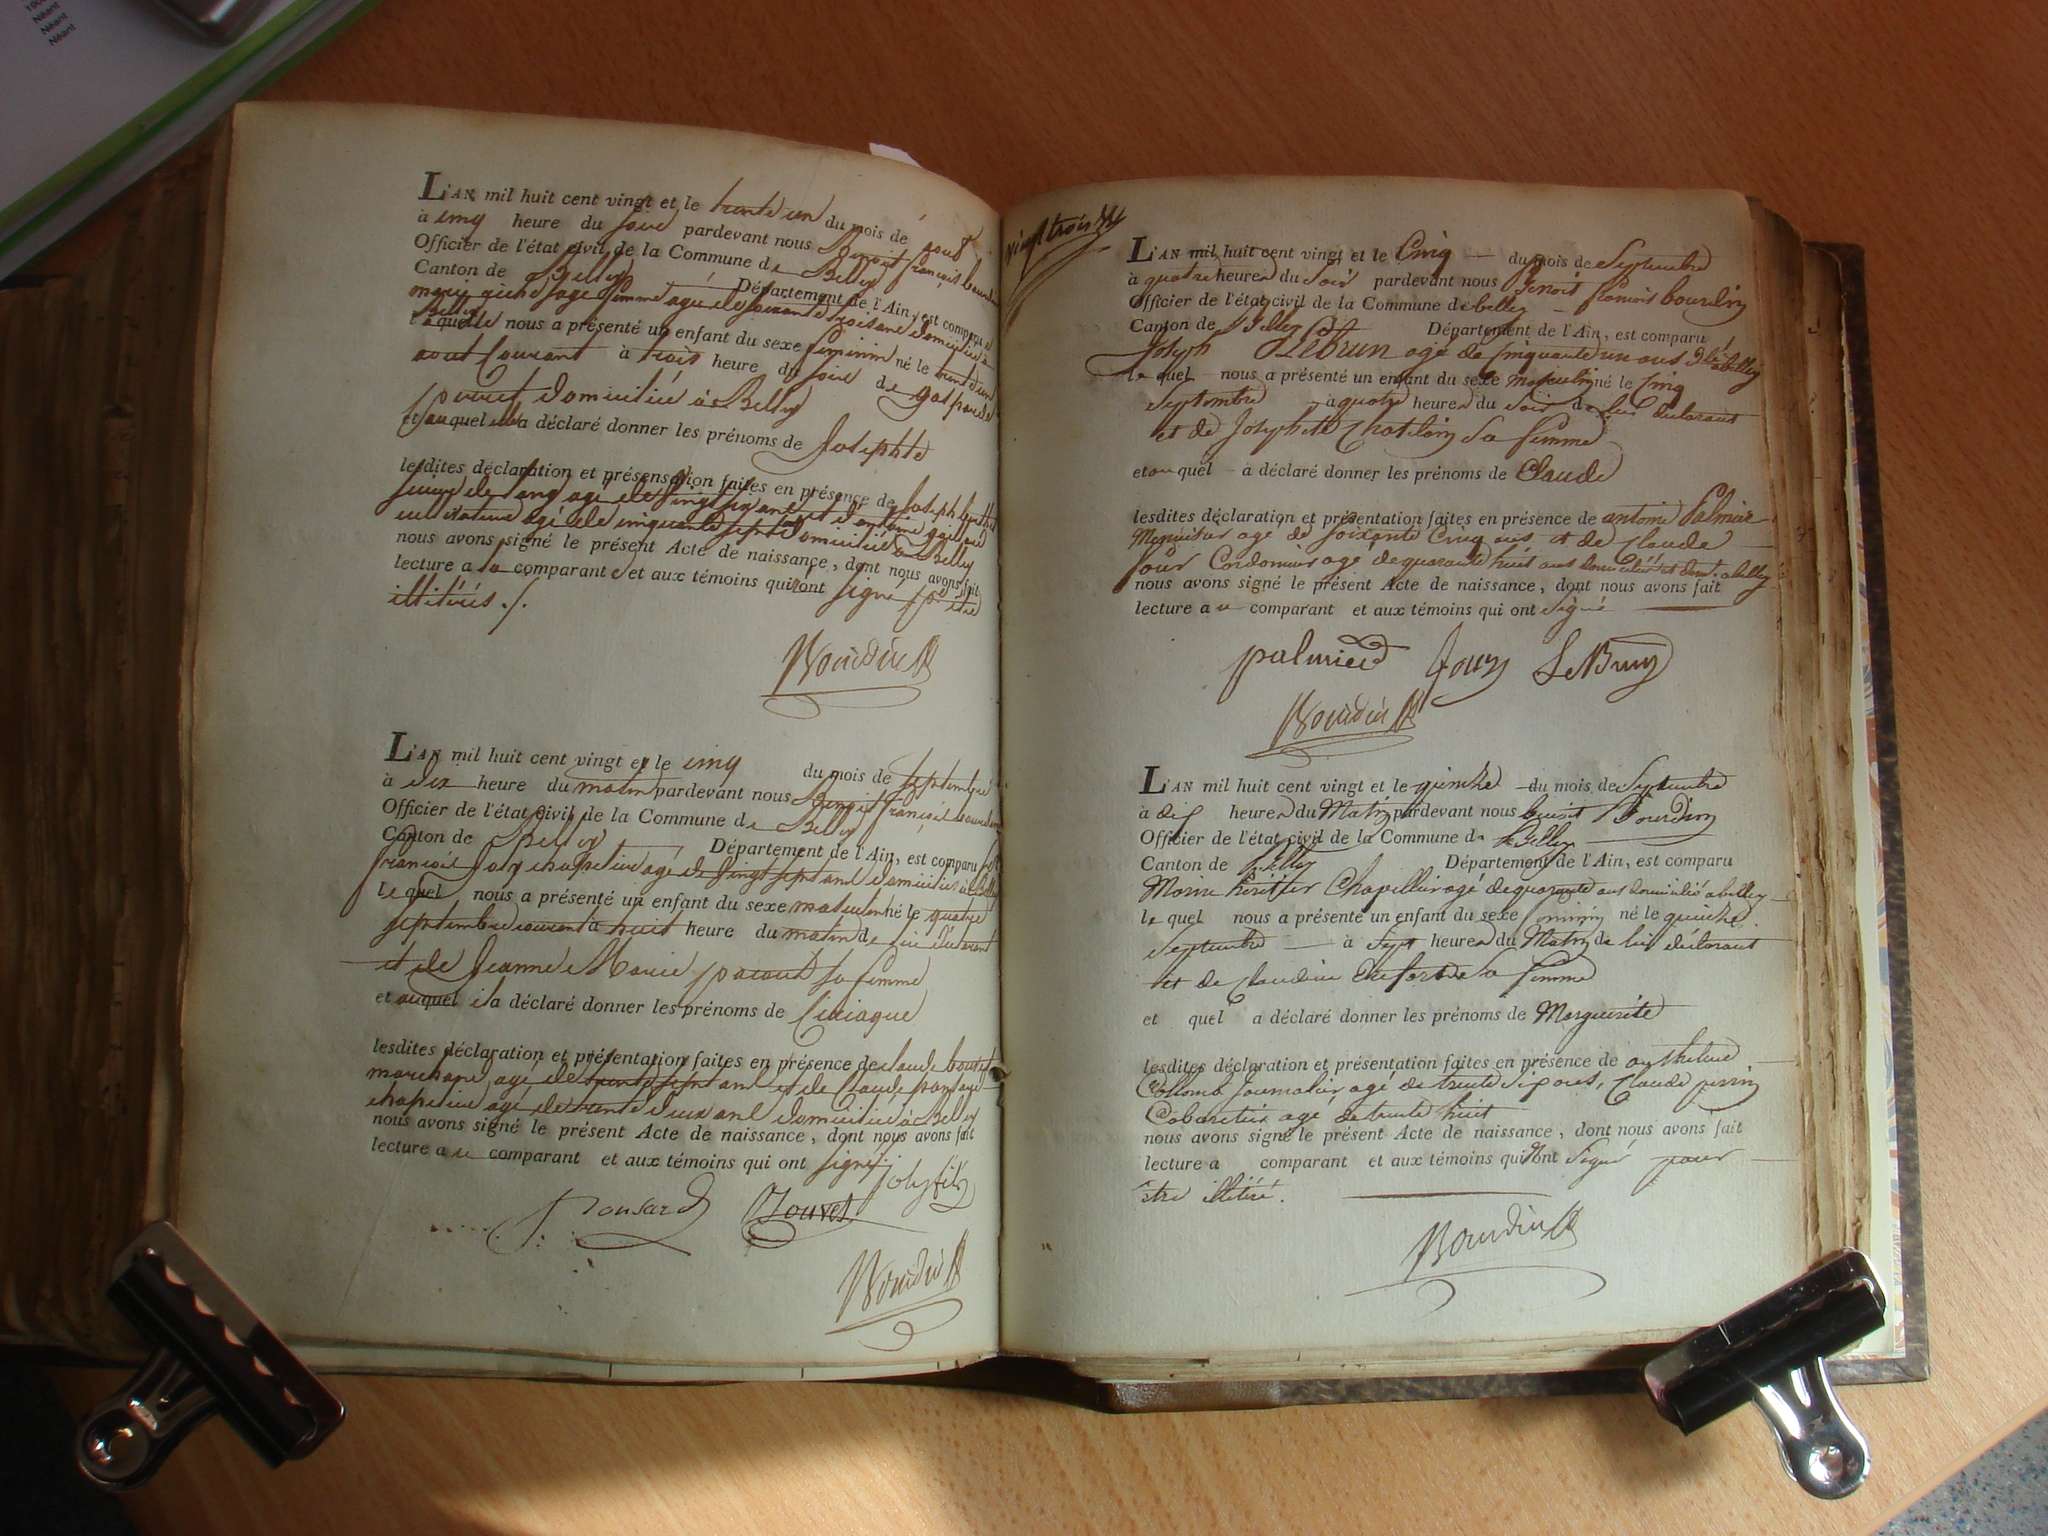 Néant
Néant
L'AN mil huit cent vingt et le trente un du mois de aout
à cinq heure du soir pardevant nous Benoit françois bourdin
Officier de l'état civil de la Commune de Belley
Canton de Belley Département de l'Ain, est comparu
sage femme agée de soixante trois ans domiciliée à
Belley
laquelle nous a présenté un enfant du sexe feminin né le trente un
aout Courant à trois heure du soir de gasparde
domiciliée à Belley
et auquel elle a déclaré donner les prénoms de Josephte
lesdites déclaration et présensation faites en présence de Joseph
agé de vingt six ans et d'antoine
cultivateur agé de cinquante sept domiciliés à Belley
nous avons signé le présent Acte de naissance, dont nous avons fait
lecture a la comparante et aux témoins qui n'ont signé p. être
illitérés ./.
Bourdin
L'AN mil huit cent vingt et le cinq du mois de septembre
à dix heure du matin pardevant nous Benoit françois bourdin
Officier de l'état civil de la Commune de Belley
Canton de Belley Département de l'Ain, est comparu
françois Joly chapelier agé de vingt sept ans domicilié à Belley
le quel nous a présenté un enfant du sexe masculin né le quatre
septembre courant à huit heure du matin de lui déclarant
et de Jeanne Marie parout sa femme
et auquel il a déclaré donner les prénoms de Ciriaque
lesdites déclaration et présentation faites en présence de claude bouvet
marchand agé de trente sept ans et de Claude ponsard
chapelier agé de trente deux ans domiciliés à Belley
nous avons signé le présent Acte de naissance, dont nous avons fait
lecture au comparant et aux témoins qui ont signé
joly fils
Ponsard Bouvet
Bourdin
vingt trois
L'AN mil huit cent vingt et le Cinq du mois de Septembre
à quatre heures du soir pardevant nous Benoit francois bourdin
Officier de l'état civil de la Commune de belley
Canton de Belley Département de l'Ain, est comparu
Joseph LeBrun agé de Cinquante un ans Dlié a belley
le quel nous a présenté un enfant du sexe masculin né le Cinq
Septembre à quatre heures du soir de lui déclarant
et de Josephte Chatelain sa femme
et au quel à déclaré donner les prénoms de Claude
lesdites déclaration et présentation faites en présence de antoine Palmier
Menuisier agé de soixante Cinq ans et de Claude
Jour Cordonnier agé de quarante huit ans domiciliés a belley
nous avons signé le présent Acte de naissance, dont nous avons fait
lecture au comparant et aux témoins qui ont signé
palmier Jour LeBrun
Bourdin
L'AN mil huit cent vingt et le quinze du mois de Septembre
à dix heures du Matin pardevant nous benoit Bourdin
Officier de l'état civil de la Commune de Belley
Canton de belley Département de l'Ain, est comparu
Chapellier agé de quarante ans domicilié a belley
le quel nous a présenté un enfant du sexe feminin né le quinze
Septembre à Sept heures du Matin de lui déclarant
et de Claudine sa femme
et quel a déclaré donner les prénoms de Marguerite
lesdites déclaration et présentation faites en présence de anthelme
Collomb Journalier agé de trente six ans, Claude perrin
Cabaretier agé de trente huit
nous avons signé le présent Acte de naissance, dont nous avons fait
lecture a comparant et aux témoins qui n'ont signé pour
être illitéré.
Bourdin